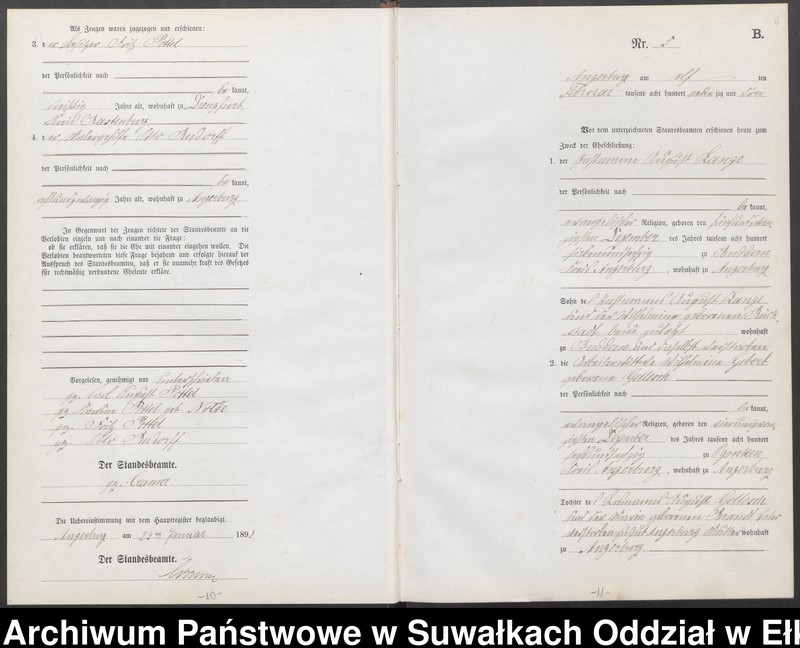 Als Zeugen waren zugezogen und erschienen:
3. der Besitzer Fritz Pottel
der Persönlichkeit nach
be kannt,
dreißig Jahre alt, wohnhaft zu
Kreis Rastenburg
4. der Malergehilfe Otto Rudorff
der Persönlichkeit nach
be kannt,
Jahre alt, wohnhaft zu Angerburg
In Gegenwart der Zeugen richtete der Standesbeamte an die
Verlobten einzeln und nach einander die Frage:
ob sie erklären, daß sie die Ehe mit einander eingehen wollen. Die
Verlobten beantworteten diese Frage bejahend und erfolgte hierauf der
Ausspruch des Standesbeamten, daß er sie nunmehr kraft des Gesetzes
für rechtmäßig verbundene Eheleute erkläre.
Vorgelesen, genehmigt und unterschrieben
gz. Carl August Pottel
gz. Karoline Pottel geb. Nolde
gz. Fritz Pottel
gz. Otto Rudorff
Der Standesbeamte.
gz. Cramer
Die Uebereinstimmung mit dem Hauptregister beglaubigt.
Angerburg am 23ten Januar 1893
Der Standesbeamte.
-10-
6
B.
Nr. 5
Angerburg am elf ten
Februar tausend acht hundert neunzig und drei
Vor dem unterzeichneten Standesbeamten erschienen heute zum
Zweck der Eheschließung:
1. der Instmann August Lange
der Persönlichkeit nach
be kannt,
evangelischer Religion, geboren den fünfundzwan-
zigsten Dezember des Jahres tausend acht hundert
siebenundsechzig zu Buddern
Kreis Angerburg, wohnhaft zu Angerburg
Sohn des Instmanns August Lange
und der Wilhelmine geborenen
wohnhaft
zu Buddern und daselbst verstorben
2. die Wilhelmine
geborene Gollesch
der Persönlichkeit nach
be kannt,
evangelischer Religion, geboren den vierundzwan-
zigsten Dezember des Jahres tausend acht hundert
zu
Kreis Angerburg, wohnhaft zu Angerburg
Tochter des August Gollesch
und der Maria geborenen Brandt Vater
verstorben Angerburg Mutter wohnhaft
zu Angerburg
-11-
Archiwum Państwowe w Suwałkach Oddział w Ełk